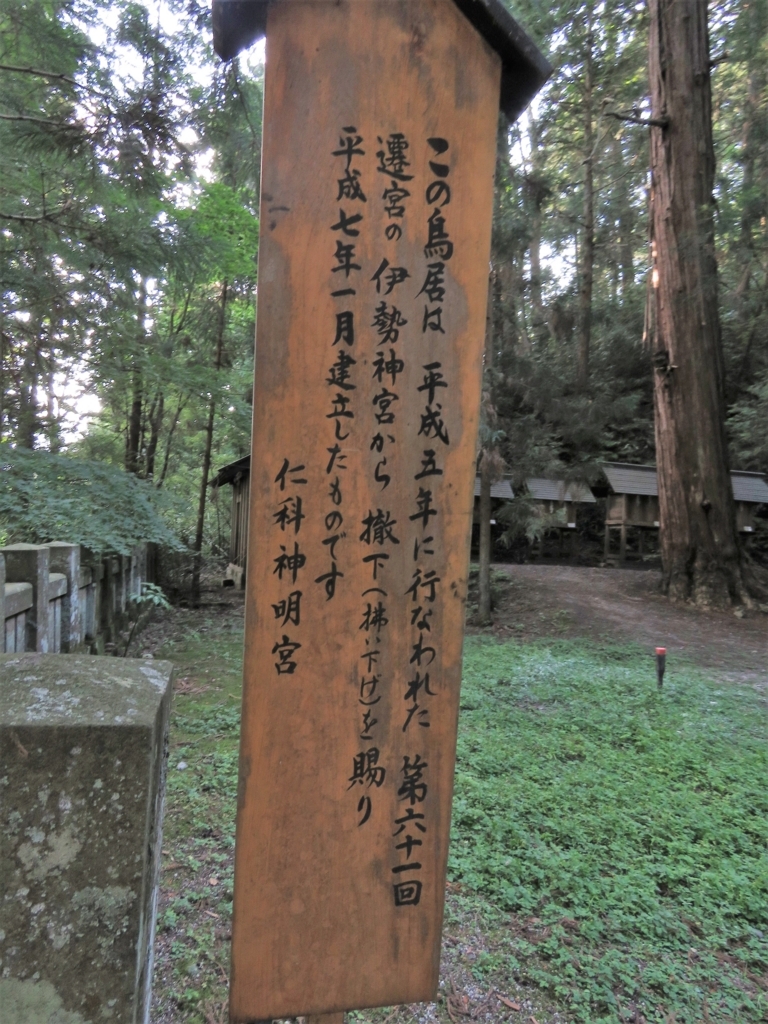 この鳥居は 平成五年に行なわれた 第六十一回
遷宮の 伊勢神宮から 撤下(拂い下げ)を 賜り
平成七年一月建立したものです
仁科神明宮